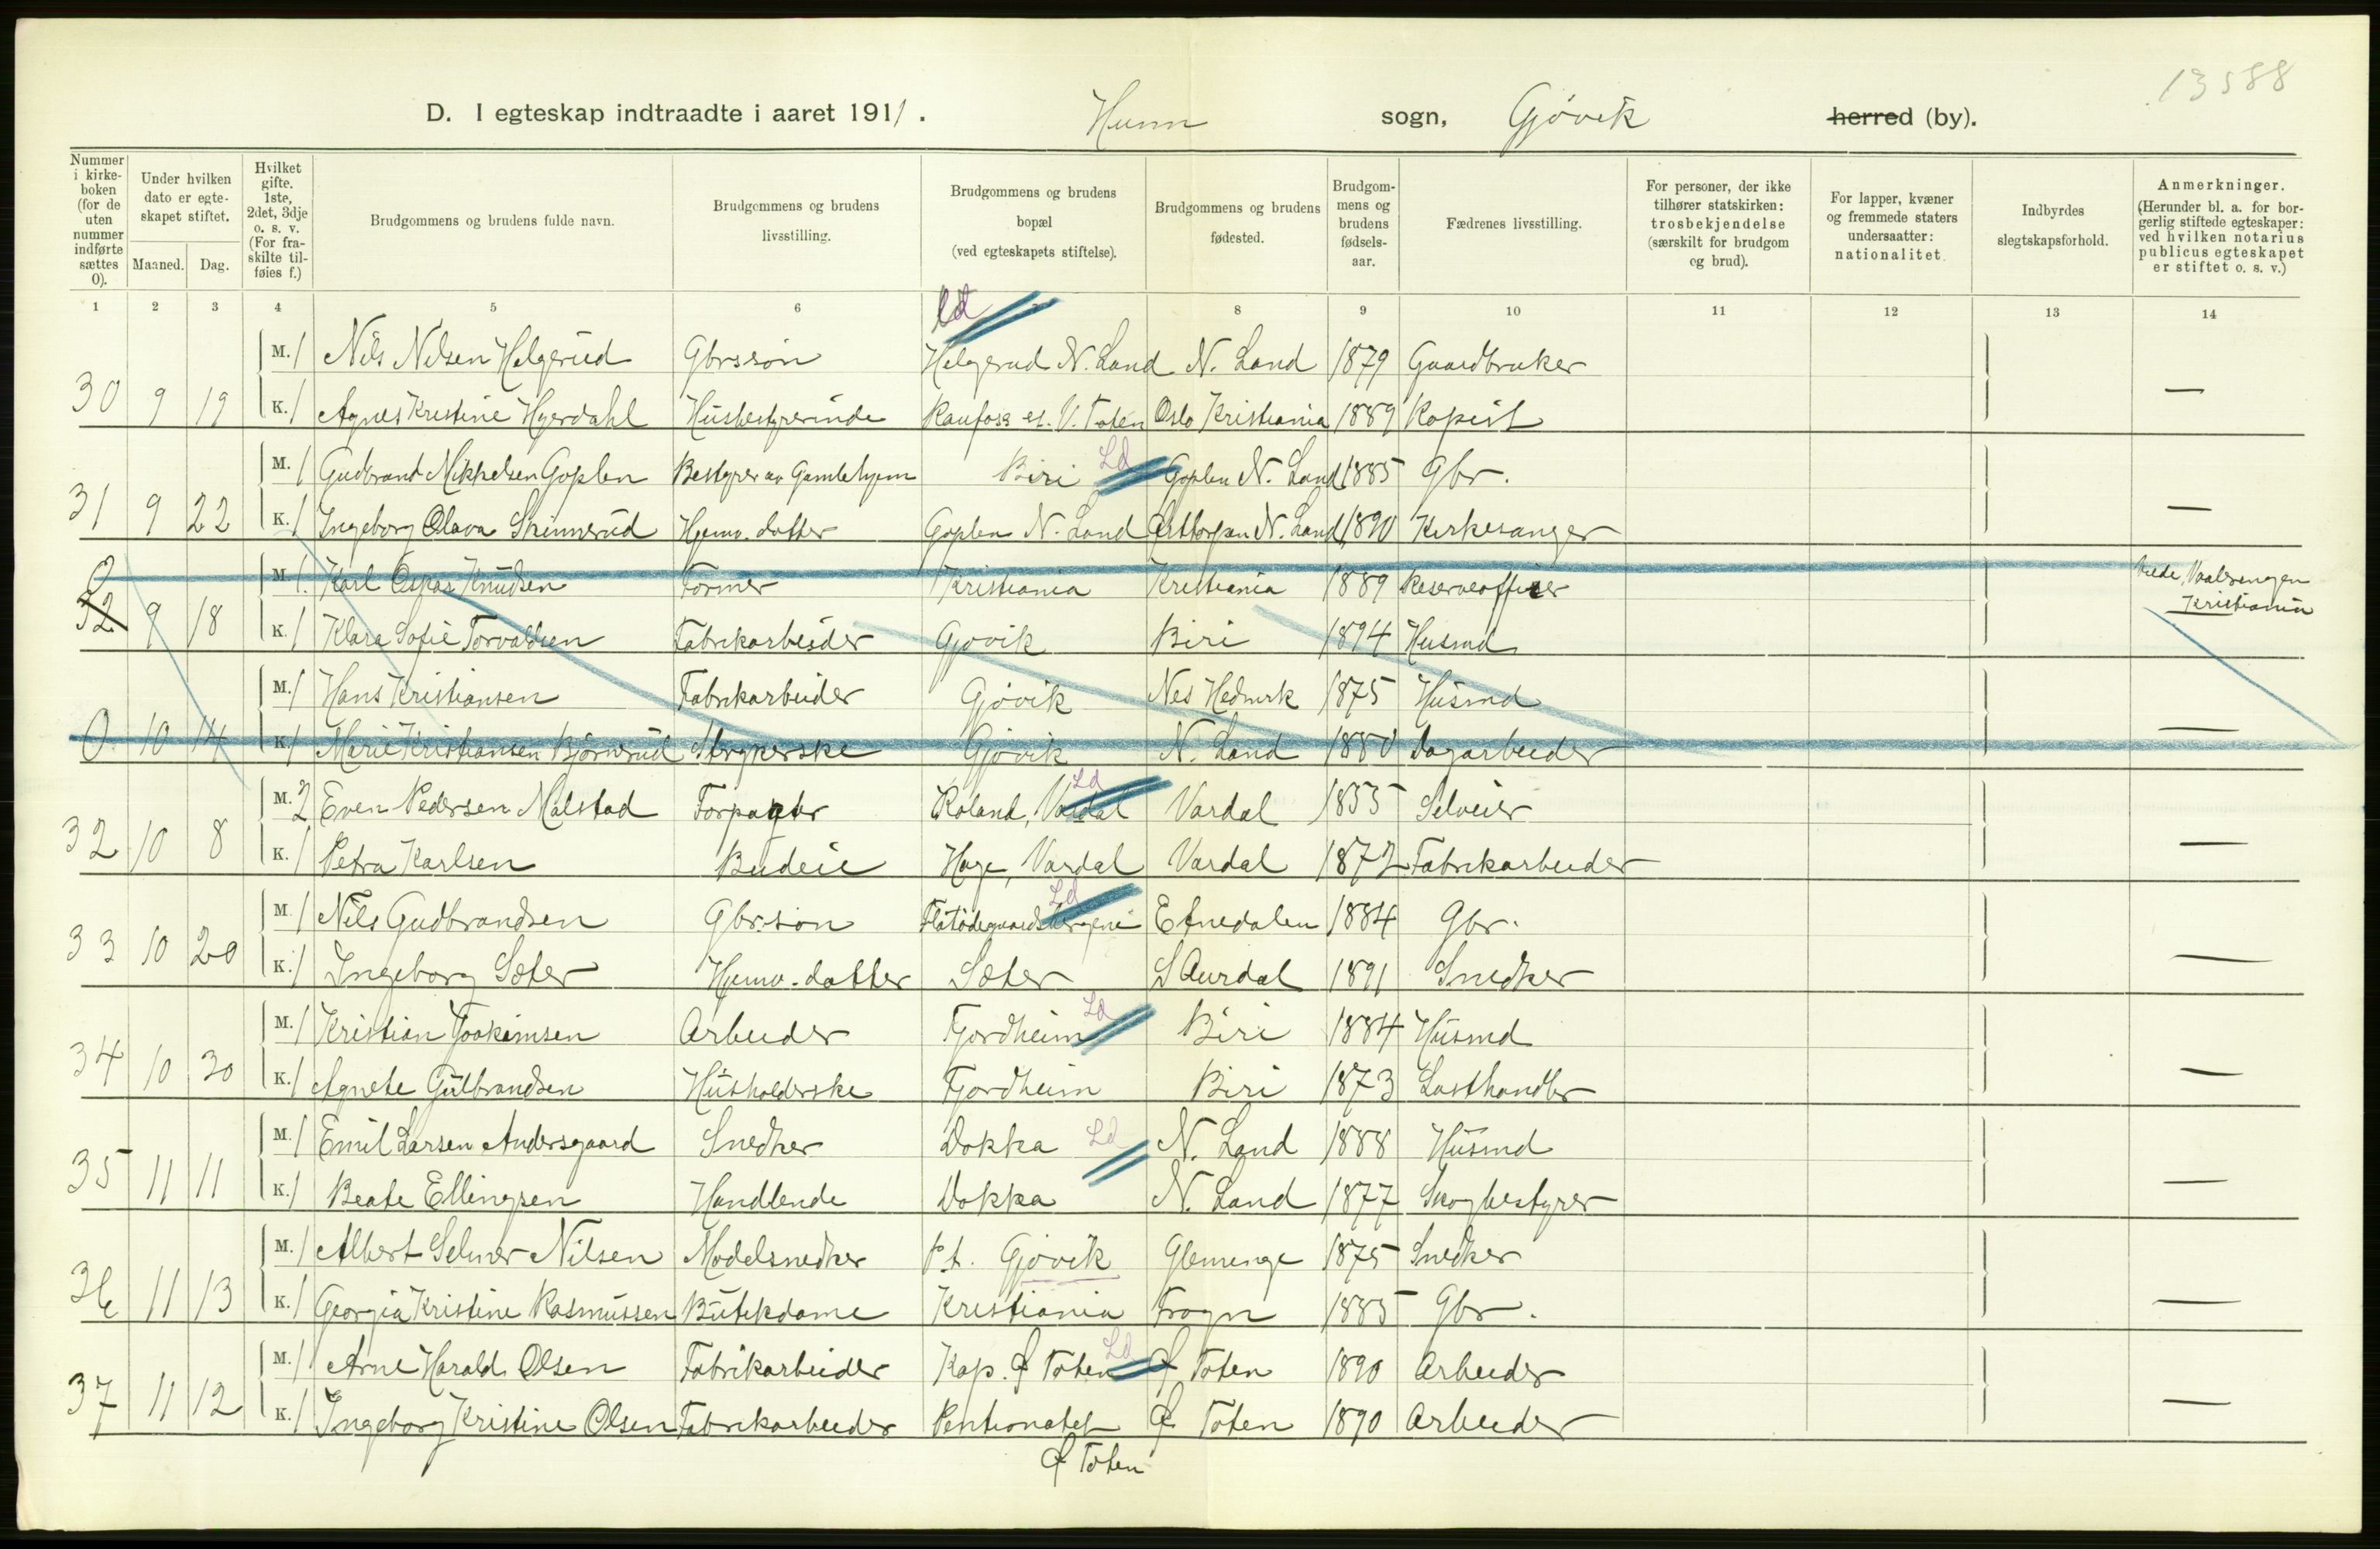 13588
D. I egteskap indtraadte i aaret 1911. Hunn sogn, Gjøvik herred (by).
Nummer i kirkeboken (for de uten nummer indførte sættes 0).
Under hvilken dato er egteskapet stiftet.
Maaned. Dag.
Hvilket gifte. 1ste, 2det, 3dje o. s. v. (For fraskilte tilføies f.)
Brudgommens og brudens fulde navn.
Brudgommens og brudens livsstilling.
Brudgommens og brudens bopæl (ved egteskapets stiftelse).
Brudgommens og brudens fødested.
Brudgommens og brudens fødselsaar.
Fædrenes livsstilling.
For personer, der ikke tilhører statskirken: trosbekjendelse (særskilt for brudgom og brud).
For lapper, kvæner og fremmede staters undersaatter: nationalitet.
Indbyrdes slegtskapsforhold.
Anmerkninger. (Herunder bl. a. for borgerlig stiftede egteskaper: ved hvilken notarius publicus egteskapet er stiftet o. s. v.)
1 2 3 4 5 6 8 9 10 11 12 13 14
Ld
M. 1 Nils Nilsen Helgerud Gbrssøn Helgerud N. Land N. Land 1879 Gaardbruker
30 9 19 K. 1 Agnes Kristine Hyerdahl Husbestyrerinde Raufoss st. V. Toten Oslo Kristiania 1889 Kopist —
M. 1 Gudbrand Mikkelsen Goplen Bestyrer av Gamlehjem Biri Ld Goplen N. Land 1885 Gbr.
31 9 22 K. 1 Ingeborg Olava Skinnerud Hjemv. datter Goplen N. Land N. Land 1890 Kirkesanger —
0 M. 1 Karl Oskar Knudsen Former Kristiania Kristiania 1889 Reserveofficer Viede, Vaalerengen
32 9 18 K. 1 Klara Sofie Torvaldsen Fabrikarbeider Gjøvik Biri 1894 Husmd Kristiania
M. 1 Hans Kristiansen Fabrikarbeider Gjøvik Nes Hedmrk 1875 Husmd
0 10 14 K. 1 Marie Kristiansen Björnerud Strykerske Gjøvik N. Land 1880 Dagarbeider —
M. 2 Even Pedersen Malstad Forpagter Roland, Vardal Ld Vardal 1855 Selveier
32 10 8 K. 1 Petra Karlsen Budeie Hage, Vardal Vardal 1872 Fabrikarbeider —
M. 1 Nils Gudbrandsen Gbr.søn Ld Etnedalen 1884 Gbr.
33 10 20 K. 1 Ingeborg Sæter Hjemv. datter Sæter S Aurdal 1891 Snedker —
M. 1 Kristian Joakimsen Arbeider Fjordheim Ld Biri 1884 Husmd
34 10 30 K. 1 Agnete Gulbrandsen Husholderske Fjordheim Biri 1873 Lasthandler —
M. 1 Emil Larsen Andersgaard Snedker Dokka Ld N. Land 1888 Husmd
35 11 11 K. 1 Beate Ellingsen Handlende Dokka N. Land 1877 Skogbestyrer —
M. 1 Albert Selmer Nilsen Modelsnedker pt. Gjøvik Glemminge 1875 Snedker
36 11 13 K. 1 Georgia Kristine Rasmussen Butikdame Kristiania Frogn 1885 Gbr. —
M. 1 Arne Harald Olsen Fabrikarbeider Kap. Ø Toten Ld Ø Toten 1890 Arbeider
37 11 12 K. 1 Ingeborg Kristine Olsen Fabrikarbeider Pentionatet Ø Toten 1890 Arbeider —
Ø Toten